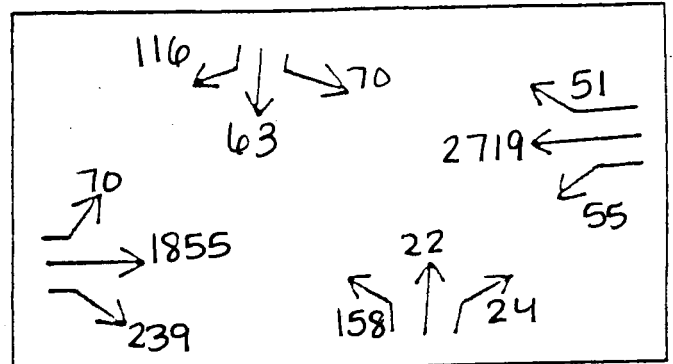 116
70
63
51
2719
55
70
1855
239
22
158
24